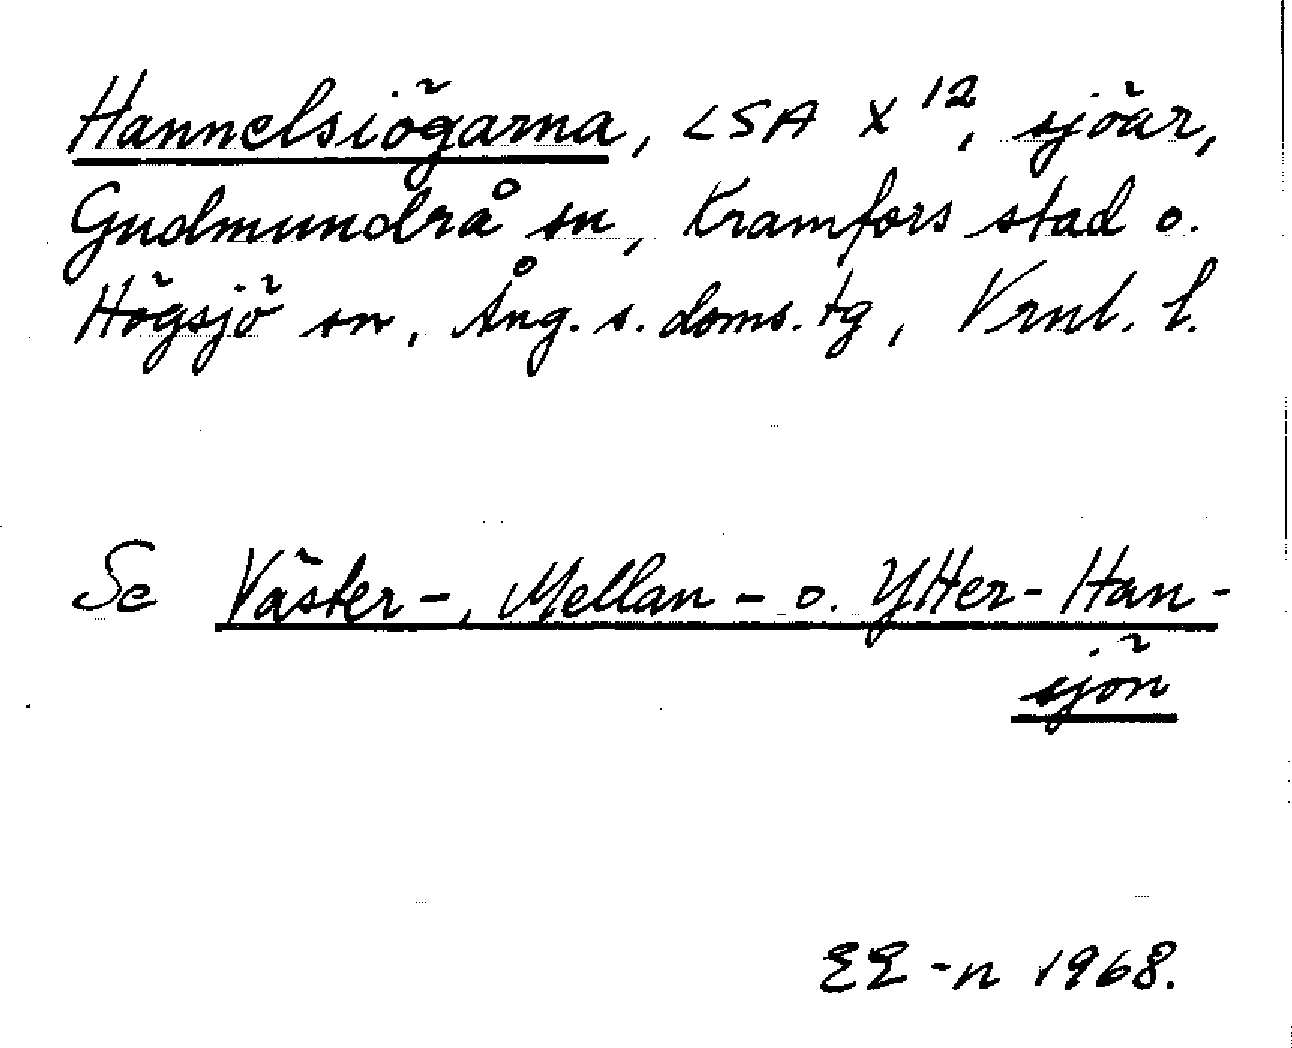 Hannelsiögarna, LSA X 12, sjöar,
Gudmundrå sn, Kramfors stad o.
Högsjö sn, Ång. s. doms. tg, Vrnl. l.
Se Väster-, Mellan- o. Ytter-Han-
sjön
EE-n 1968.